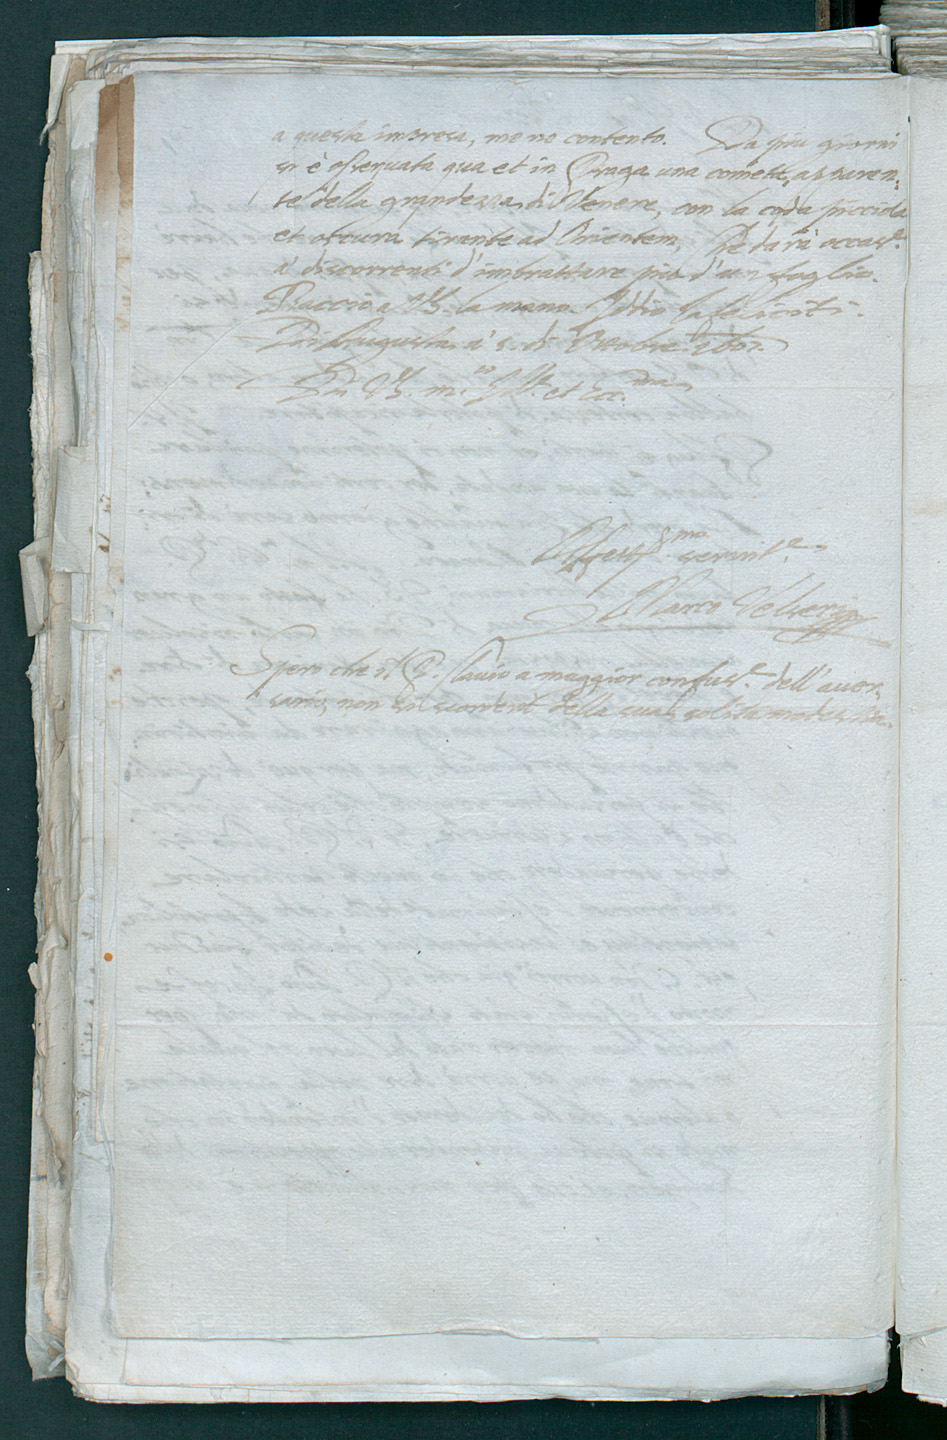 a questa impresa, me ne contento. Da piu giorni
si è osservata qua et in Praga una cometa, apparen,,
te della grandezza di Venere, con la coda picciola
et oscura tirante ad Orientem, che darà occas.e
a' discorrenti d'imbrattare più d'un foglio.
Baccio a VS. la mano. Iddio la feliciti.
Di Augusta a' 5. di Ottobre 1607.
Di VS. m.to Ill. et Ecc.ma
Affett.mo servit.e
Marco Velseri
Spero che il P. Clavio a maggior confus.e dell'aver,,
sario, non si scorderà della sua solita modestia.